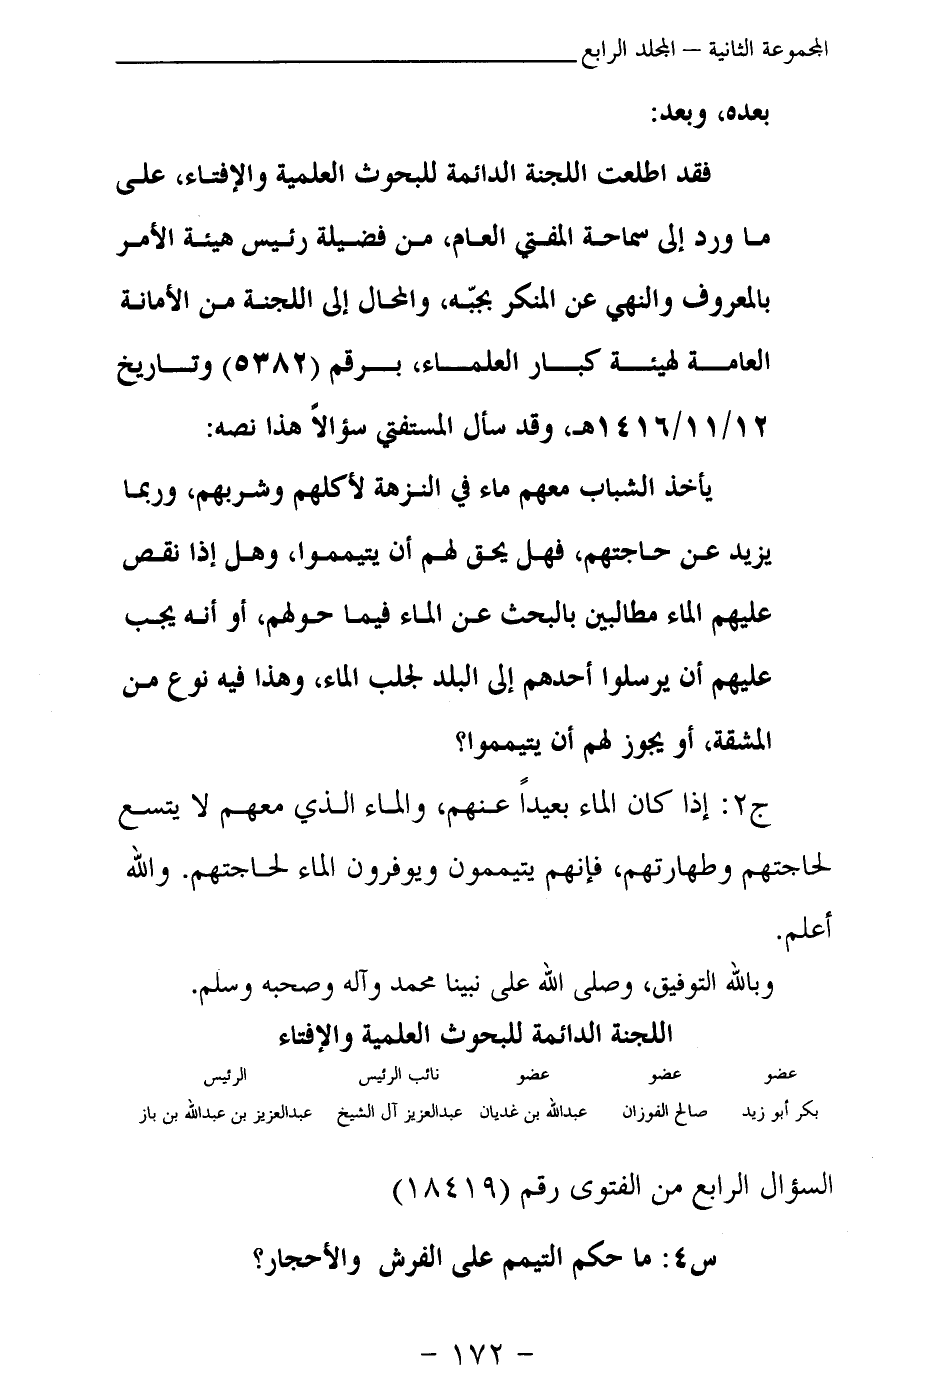 المجموعة الثانية – المجلد الرابع
بعده، وبعد:
فقد اطلعت اللجنة الدائمة للبحوث العلمية والإفتاء، على
ما ورد إلى سماحة المفتي العام، من فضيلة رئيس هيئة الأمر
بالمعروف والنهي عن المنكر بجبّه، والمحال إلى اللجنة من الأمانة
العامة لهيئة كبار العلماء، برقم (٥٣٨٢) وتاريخ
١٤١٦/١١/١٢هـ، وقد سأل المستفتي سؤالاً هذا نصه:
يأخذ الشباب معهم ماء في النزهة لأكلهم وشربهم، وربما
يزيد عن حاجتهم، فهل يحق لهم أن يتيمموا، وهل إذا نقص
عليهم الماء مطالبين بالبحث عن الماء فيما حولهم، أو أنه يجب
عليهم أن يرسلوا أحدهم إلى البلد لجلب الماء، وهذا فيه نوع من
المشقة، أو يجوز لهم أن يتيمموا؟
ج٢: إذا كان الماء بعيداً عنهم، والماء الذي معهم لا يتسع
لحاجتهم وطهارتهم، فإنهم يتيممون ويوفرون الماء لحاجتهم. والله
أعلم.
وبالله التوفيق، وصلى الله على نبينا محمد وآله وصحبه وسلم.
اللجنة الدائمة للبحوث العلمية والإفتاء
عضو عضو عضو نائب الرئيس الرئيس
بكر أبو زيد صالح الفوزان عبدالله بن غديان عبدالعزيز آل الشيخ عبدالعزيز بن عبدالله بن باز
السؤال الرابع من الفتوى رقم (١٨٤١٩)
س٤: ما حكم التيمم على الفرش والأحجار؟
– ١٧٢ –